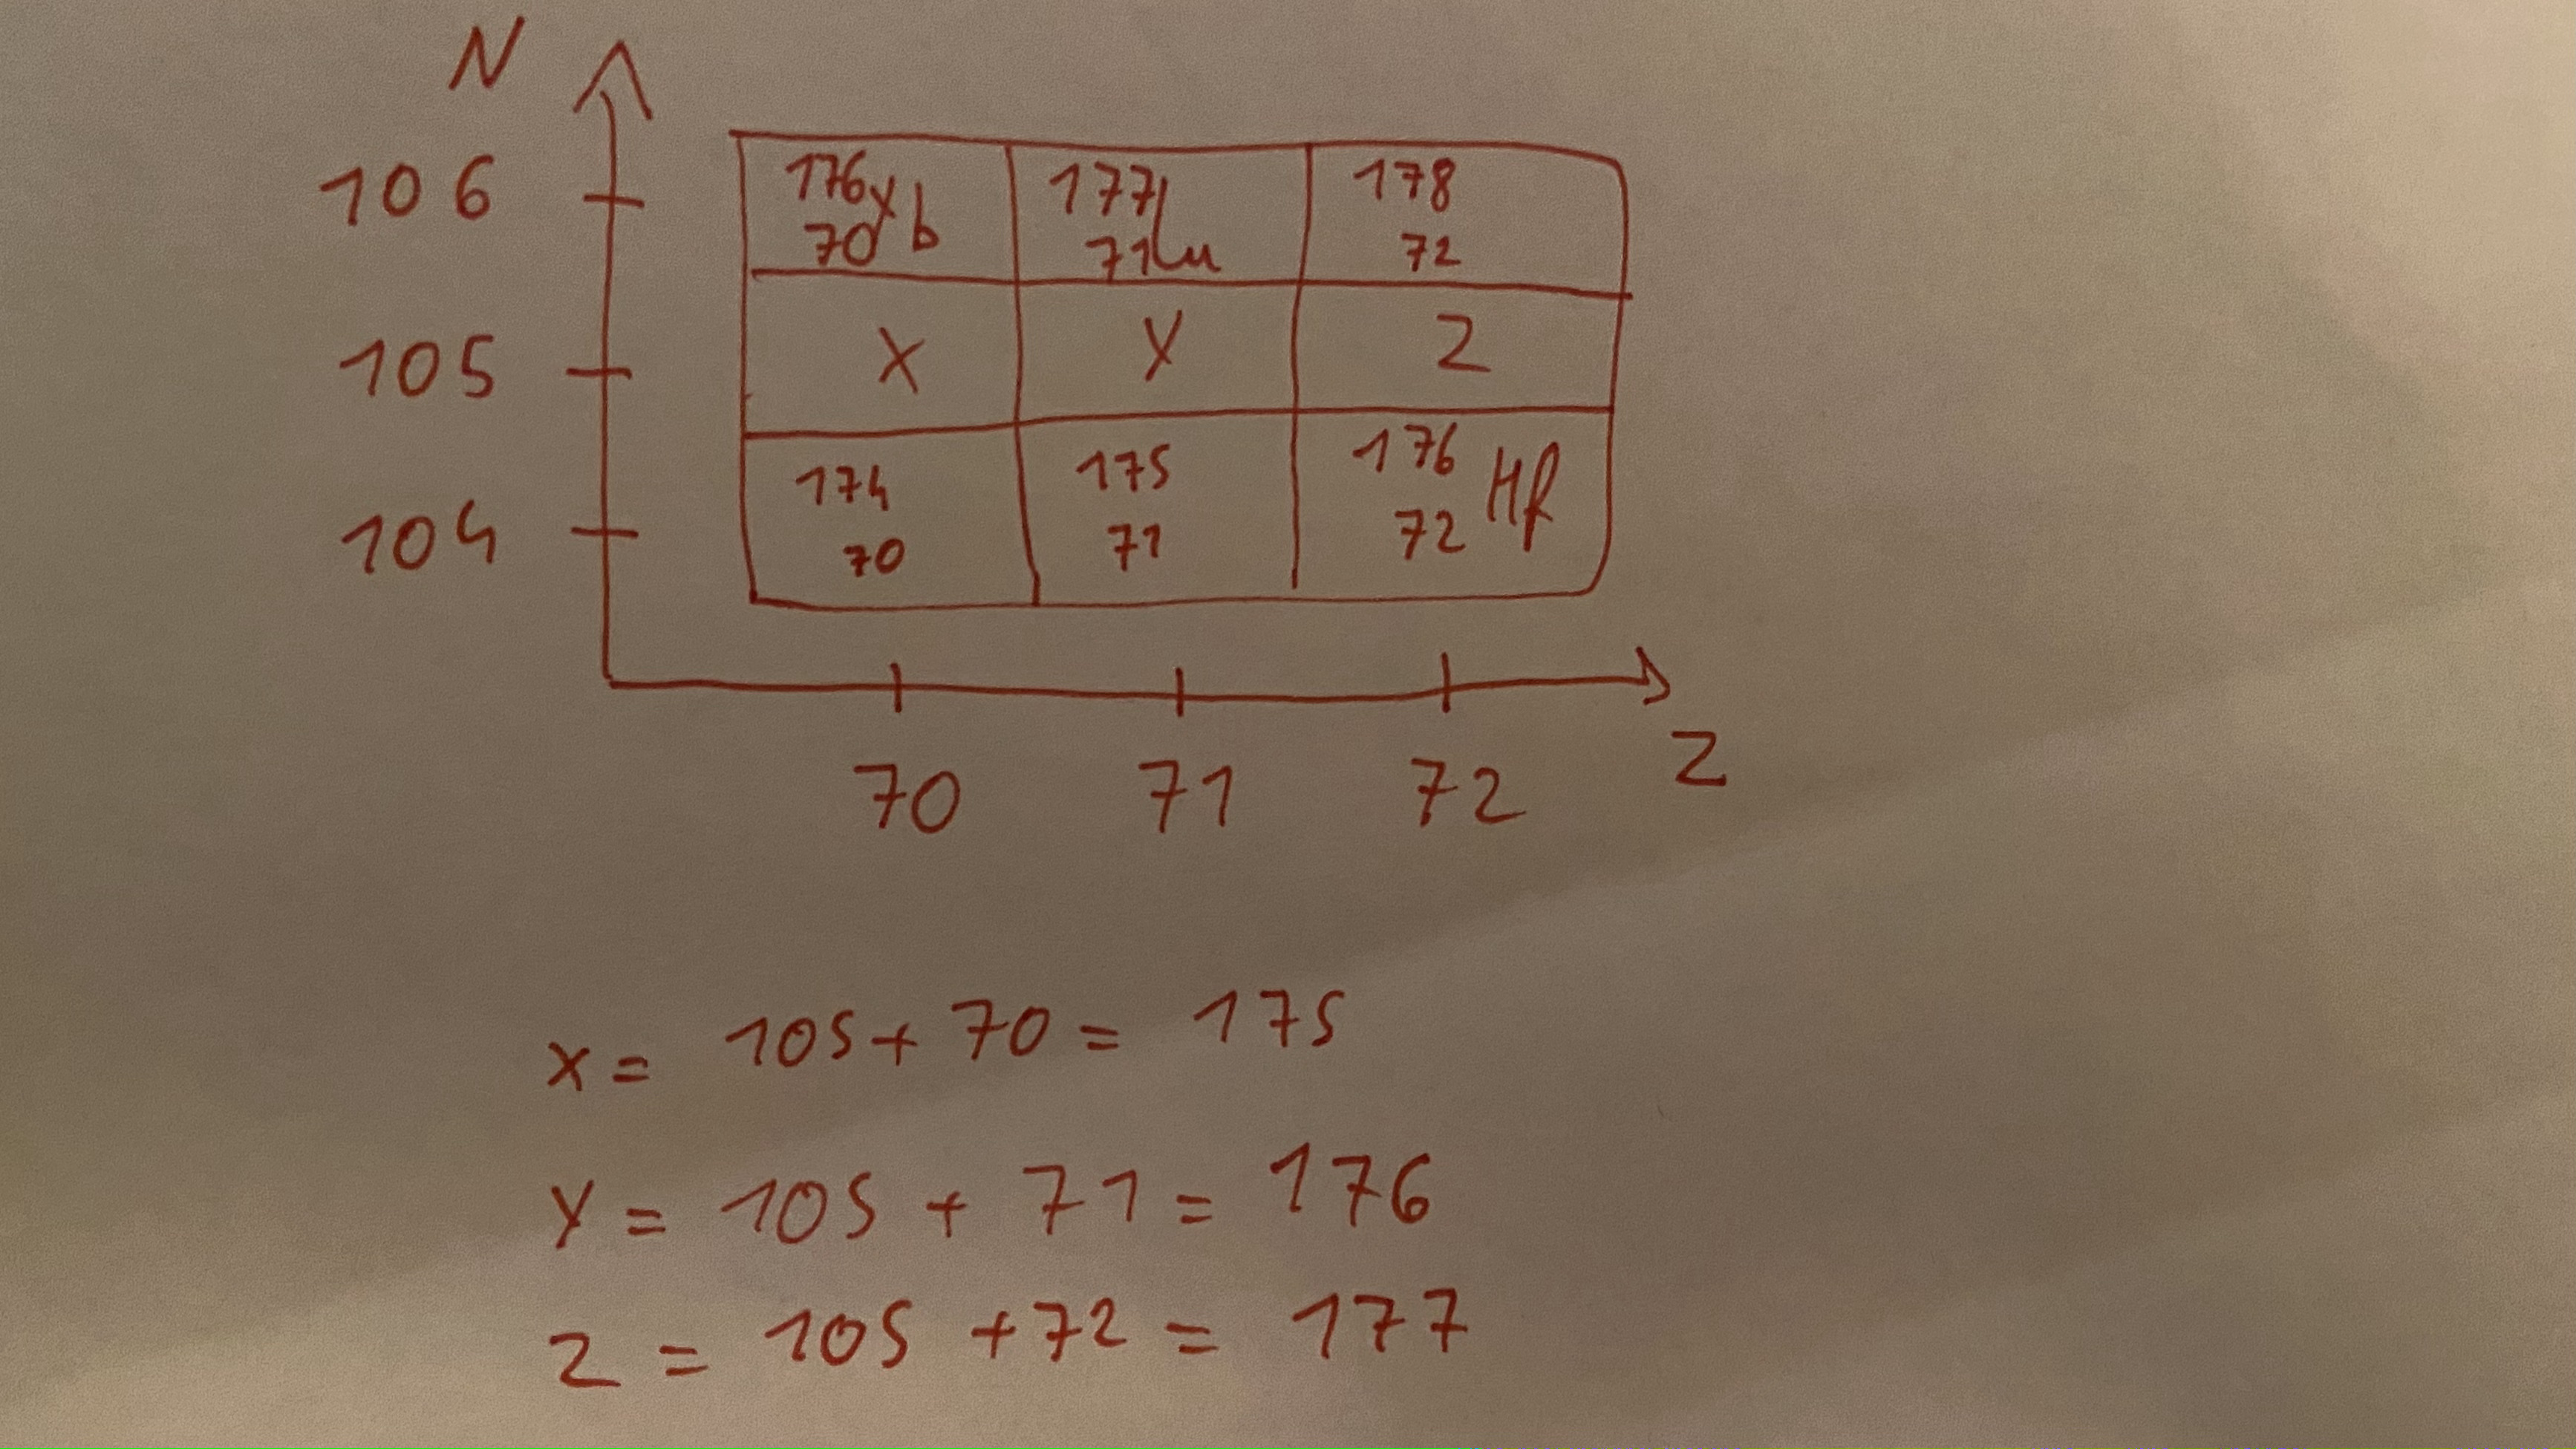 N
106
176 Yb
70
177 Lu
71
178
72
105
X
Y
Z
104
174
70
175
71
176 Hf
72
70 71 72 Z
X = 105 + 70 = 175
Y = 105 + 71 = 176
Z = 105 + 72 = 177